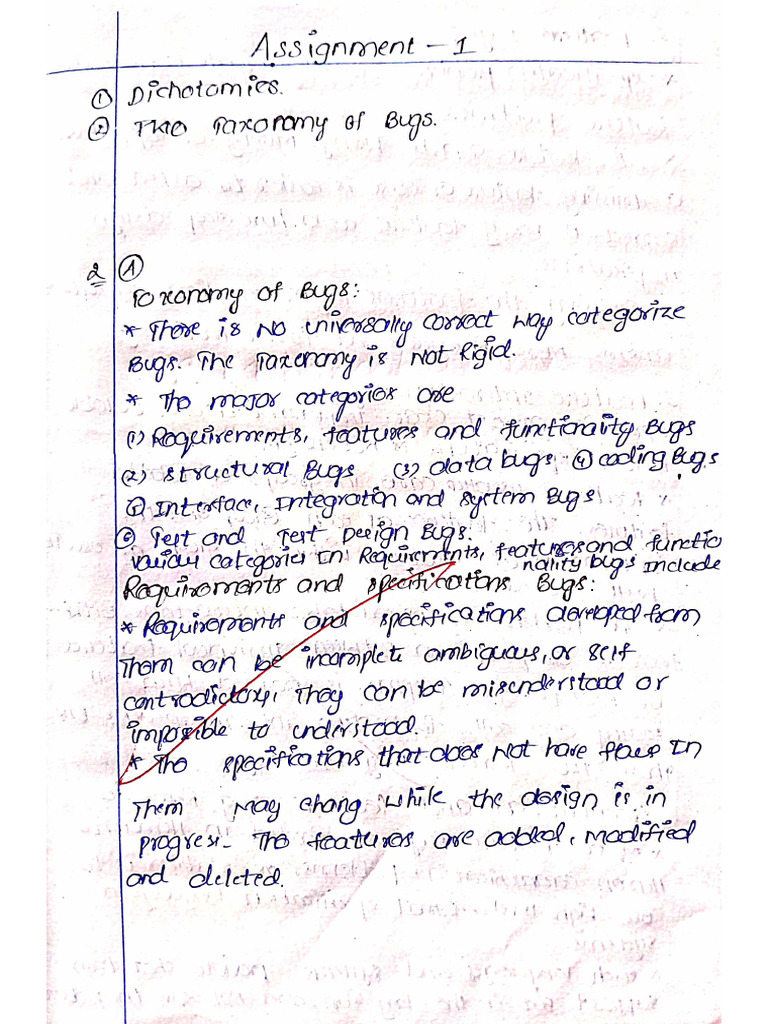 Assignment - 1
① Dichotomies.
② The Taxonomy of Bugs.
2 ①
Taxonomy of Bugs:
* There is No universally correct way categorize
Bugs. The Taxonomy is Not Rigid.
* The major categories are
(1) Requirements, features and functionality Bugs
(2) structural Bugs (3) data bugs ④ coding Bugs
⑤ Interface, Integration and system Bugs
⑥ Test and Test Design Bugs.
various categories In Requirements, features and functio
nality bugs Include
Requirements and specifications Bugs:
* Requirements and specifications developed from
Them can be incomplete ambiguous, or self
contradictory, They can be misunderstood or
impossible to understood.
* The specifications that does Not have flaws In
Them May chang while the design is in
progres- The features are added, modified
and deleted.